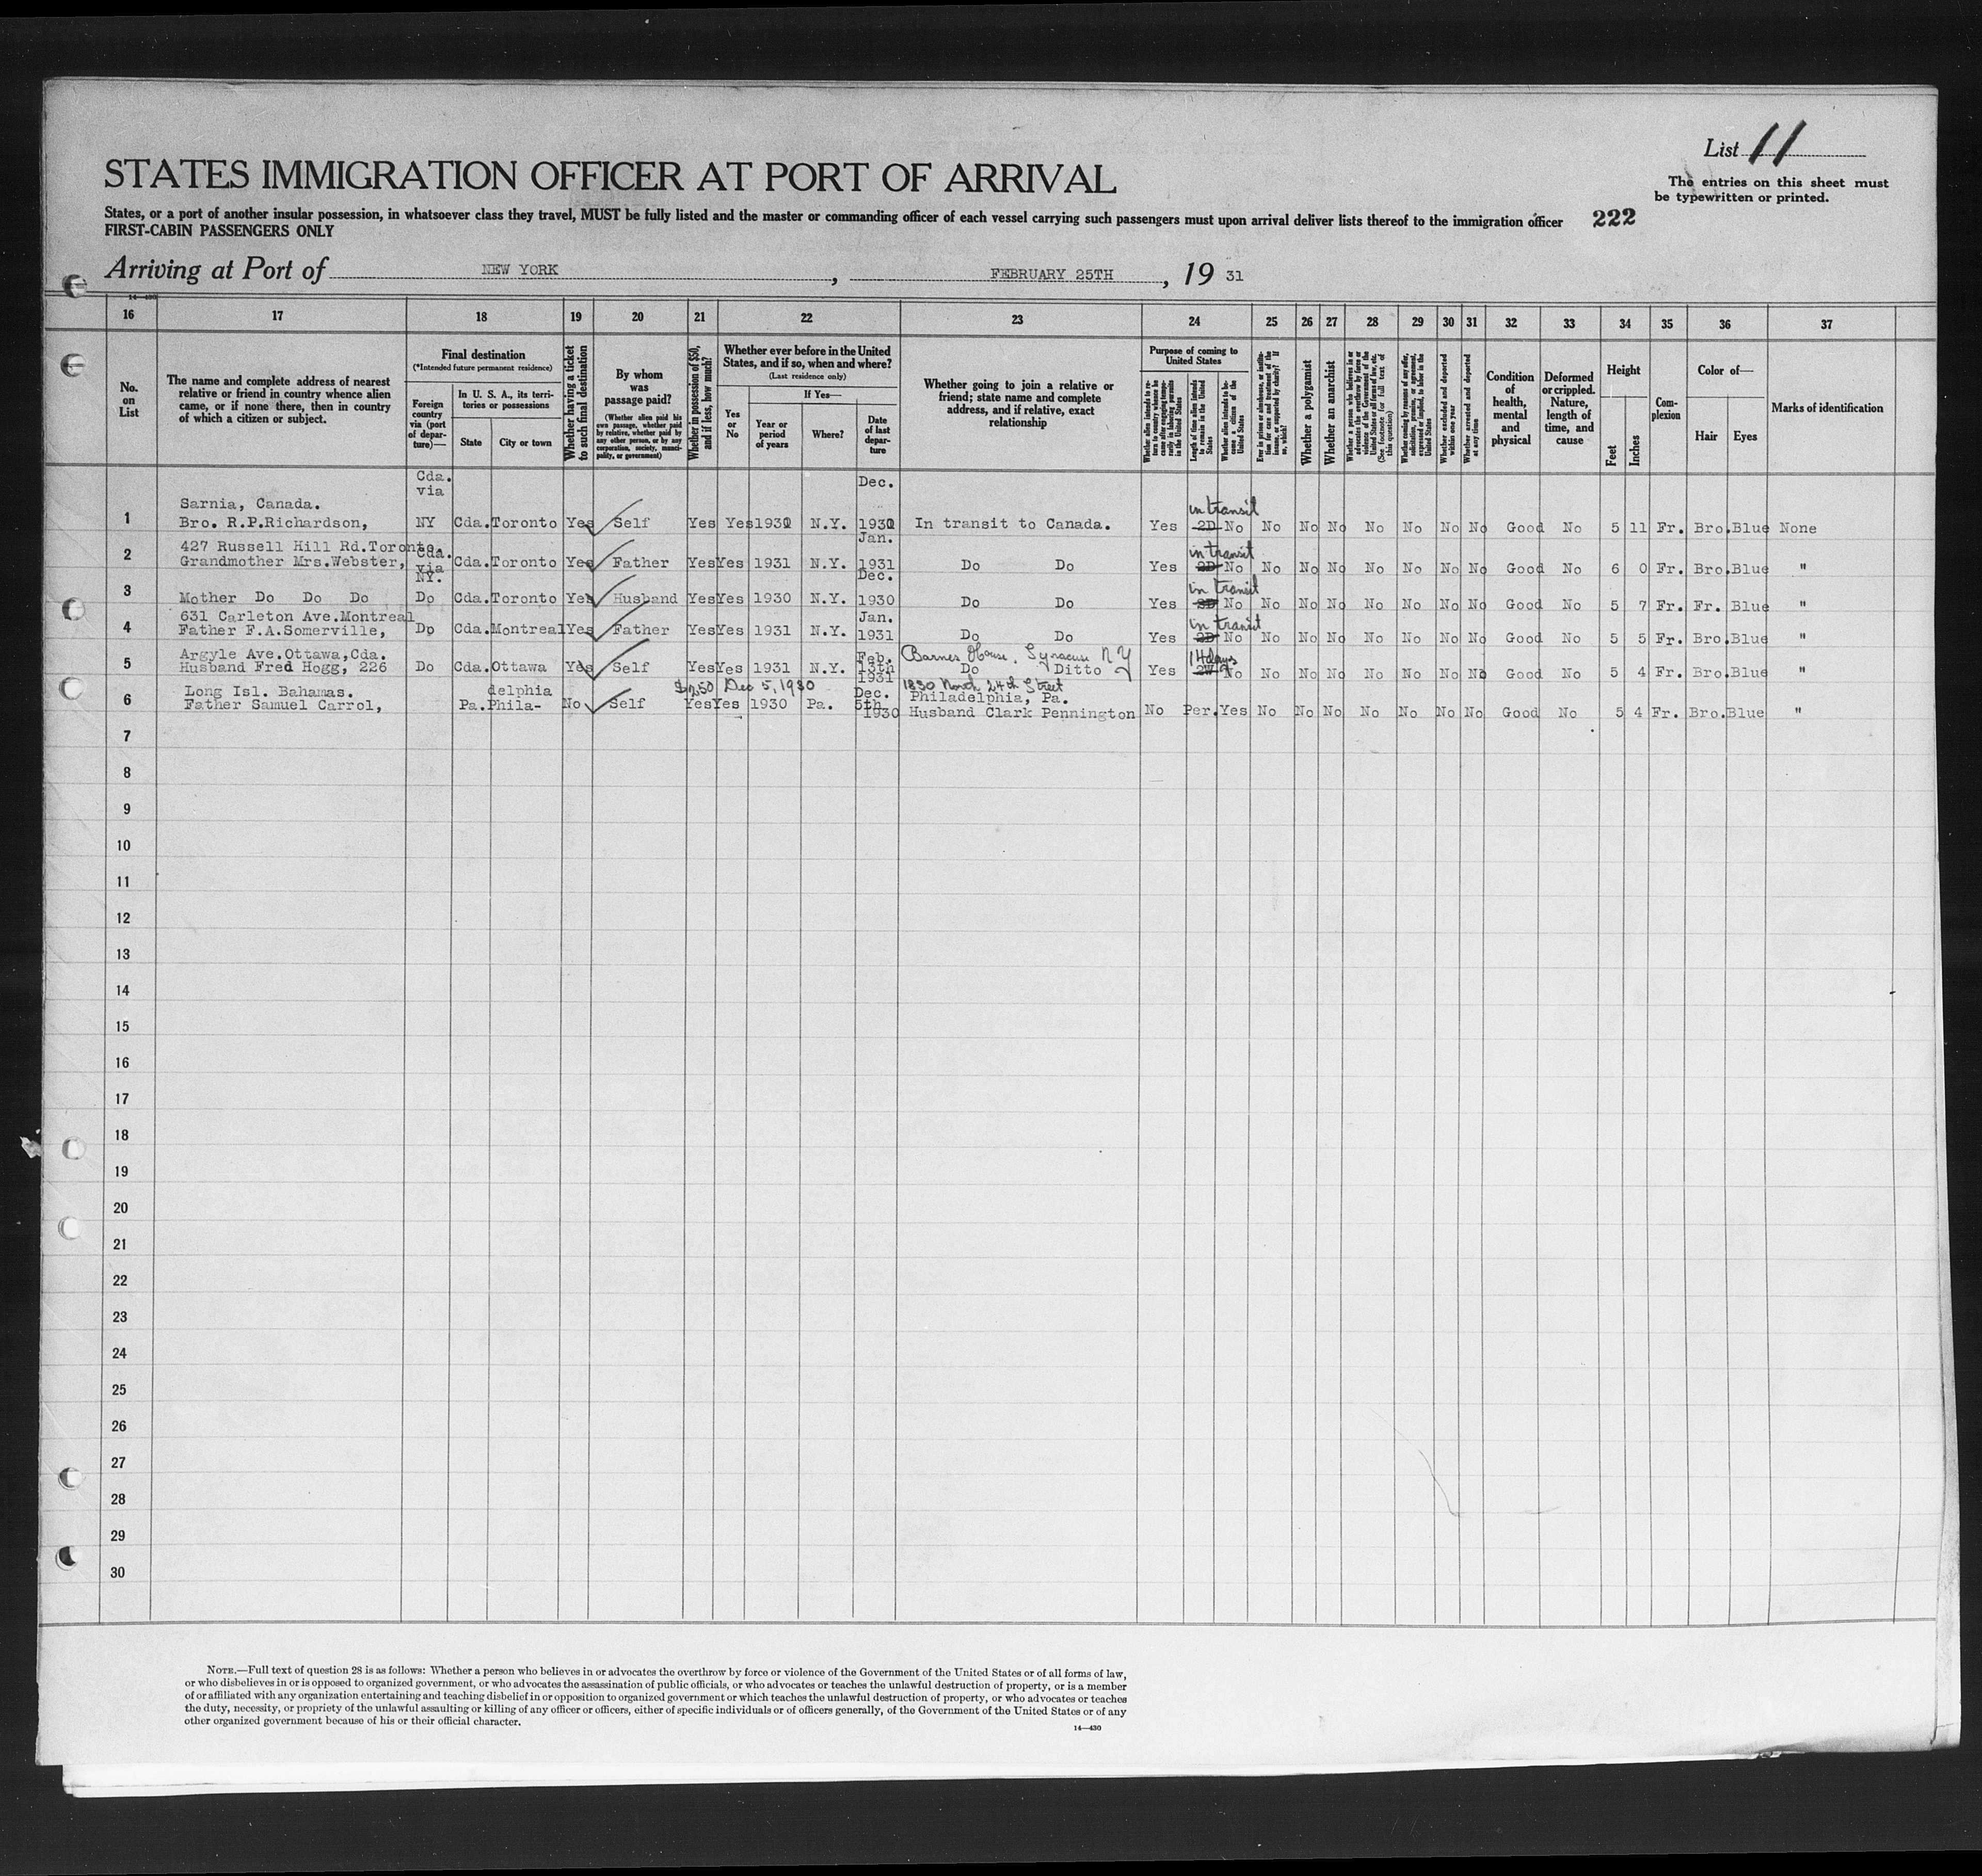 List 11
The entries on this sheet must
be typewritten or printed.
STATES IMMIGRATION OFFICER AT PORT OF ARRIVAL
States, or a port of another insular possession, in whatsoever class they travel, MUST be fully listed and the master or commanding officer of each vessel carrying such passengers must upon arrival deliver lists thereof to the immigration officer 222
FIRST-CABIN PASSENGERS ONLY
Arriving at Port of NEW YORK, FEBRUARY 25TH, 19 31
14—430
16 17 18 19 20 21 22 23 24 25 26 27 28 29 30 31 32 33 34 35 36 37
No. on List
The name and complete address of nearest relative or friend in country whence alien came, or if none there, then in country of which a citizen or subject.
Final destination
(*Intended future permanent residence)
Foreign country via (port of departure)—
In U. S. A., its territories or possessions
State
City or town
Whether having a ticket to such final destination
By whom was passage paid?
(Whether alien paid his own passage, whether paid by relative, whether paid by any other person, or by any corporation, society, municipality, or government)
Whether in possession of $50, and if less, how much?
Whether ever before in the United States, and if so, when and where?
(Last residence only)
Yes or No
If Yes—
Year or period of years
Where?
Date of last departure
Whether going to join a relative or friend; state name and complete address, and if relative, exact relationship
Purpose of coming to United States
Length of time alien intends to remain in the United States
Whether alien intends to become a citizen of the United States
Whether a polygamist
Whether an anarchist
Whether excluded and deported within one year
Whether arrested and deported at any time
Condition of health, mental and physical
Deformed or crippled. Nature, length of time, and cause
Height
Feet
Inches
Complexion
Color of—
Hair
Eyes
Marks of identification
Cda. via Dec.
Sarnia, Canada. in transit
1 Bro. R.P.Richardson, NY Cda. Toronto Yes Self Yes Yes 1930 N.Y. 1930 In transit to Canada. Yes 2D No No No No No No No No Good No 5 11 Fr. Bro. Blue None
427 Russell Hill Rd.Toronto. Cda. Jan. in transit
2 Grandmother Mrs.Webster, via NY. Cda. Toronto Yes Father Yes Yes 1931 N.Y. 1931 Do Do Yes 2D No No No No No No No No Good No 6 0 Fr. Bro. Blue "
Dec. in transit
3 Mother Do Do Do Do Cda. Toronto Yes Husband Yes Yes 1930 N.Y. 1930 Do Do Yes 2D No No No No No No No No Good No 5 7 Fr. Fr. Blue "
631 Carleton Ave.Montreal Jan. in transit
4 Father F.A.Somerville, Do Cda. Montreal Yes Father Yes Yes 1931 N.Y. 1931 Do Do Yes 2D No No No No No No No No Good No 5 5 Fr. Bro. Blue "
Argyle Ave.Ottawa,Cda. Feb. Barnes House, Syracuse N Y 14 days
5 Husband Fred Hogg, 226 Do Cda. Ottawa Yes Self Yes Yes 1931 N.Y. 13th 1931 Do Ditto Yes 2W No No No No No No No No Good No 5 4 Fr. Bro. Blue "
Long Isl. Bahamas. delphia Dec 5, 1930 Dec. 1830 North 24th Street
Philadelphia, Pa.
6 Father Samuel Carrol, Pa. Phila- No Self Yes Yes 1930 Pa. 5th 1930 Husband Clark Pennington No Per. Yes No No No No No No No Good No 5 4 Fr. Bro. Blue "
7
8
9
10
11
12
13
14
15
16
17
18
19
20
21
22
23
24
25
26
27
28
29
30
NOTE.—Full text of question 28 is as follows: Whether a person who believes in or advocates the overthrow by force or violence of the Government of the United States or of all forms of law,
or who disbelieves in or is opposed to organized government, or who advocates the assassination of public officials, or who advocates or teaches the unlawful destruction of property, or is a member
of or affiliated with any organization entertaining and teaching disbelief in or opposition to organized government or which teaches the unlawful destruction of property, or who advocates or teaches
the duty, necessity, or propriety of the unlawful assaulting or killing of any officer or officers, either of specific individuals or of officers generally, of the Government of the United States or of any
other organized government because of his or their official character.
14—430